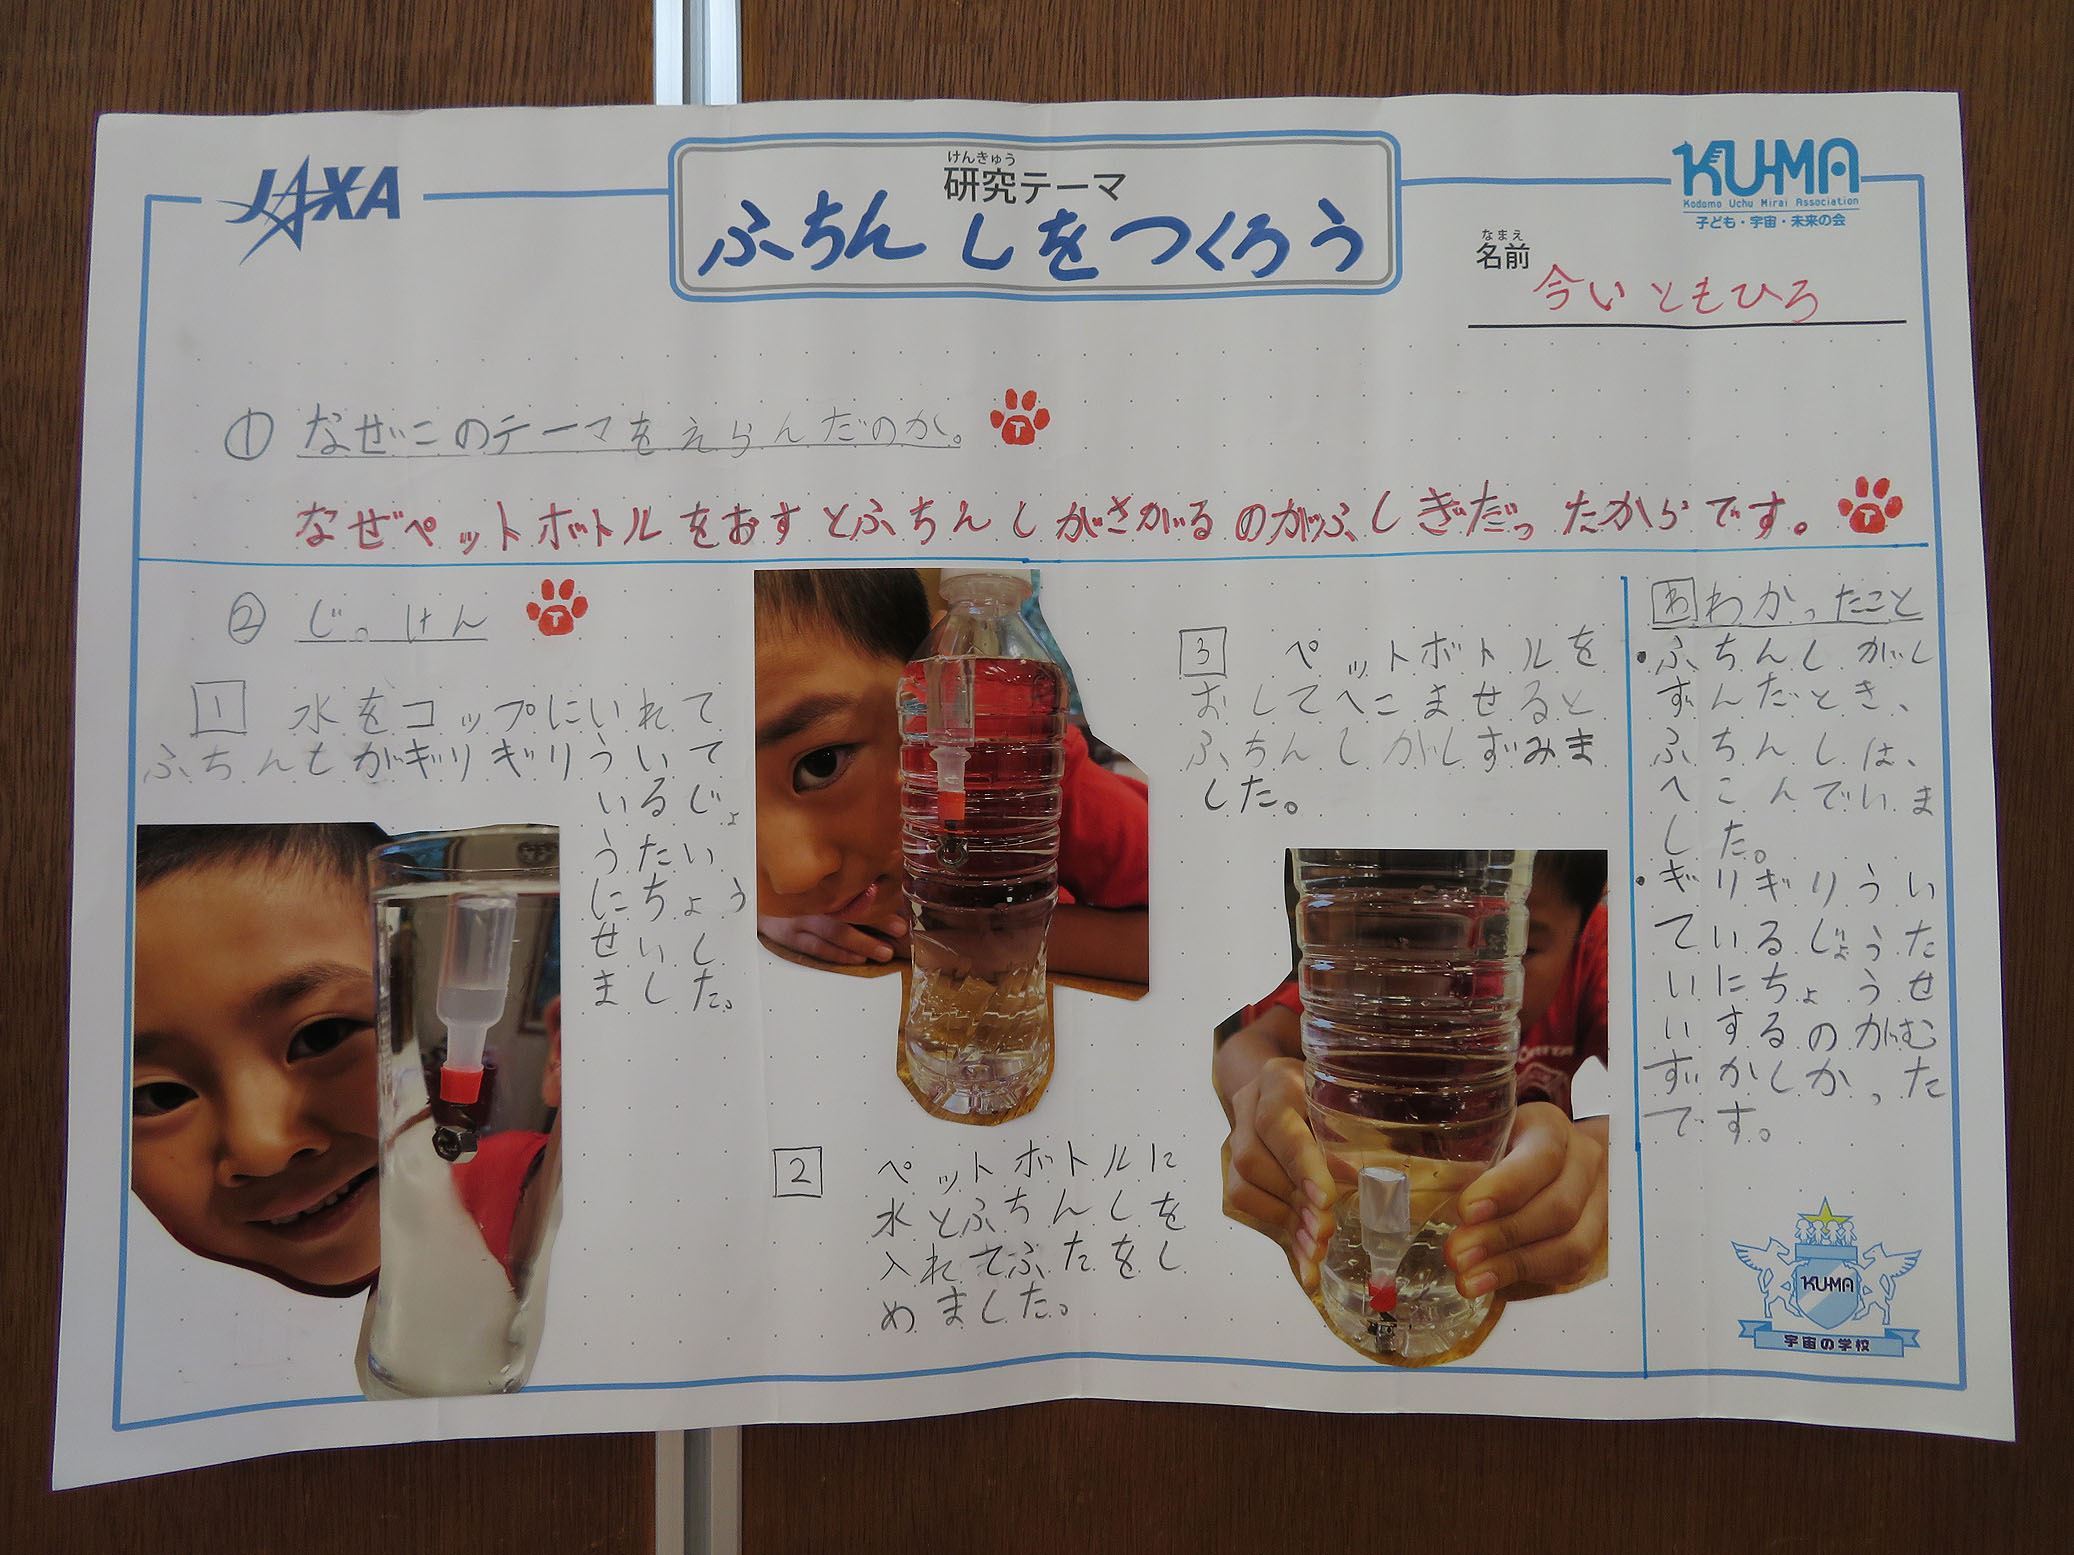 JAXA
けんきゅう
研究テーマ
ふちんしをつくろう
KU-MA
Kodomo Uchu Mirai Association
子ども・宇宙・未来の会
なまえ
名前
今い ともひろ
① なぜこのテーマをえらんだのか。
T
なぜペットボトルをおすとふちんしがさがるのがふしぎだったからです。
T
② じっけん
T
1 水をコップにいれて
ふちんしがギリギリういて
いるじょ
うたい
にちょう
せいし
ました。
2 ペットボトルに
水とふちんしを
入れてふたをし
めました。
3 ペットボトルを
おしてへこませると
ふちんしがしずみま
した。
わ わかったこと
・ふちんしがし
ずんだとき、
ふちんしは、
へこんでいま
した。
・ギリギリうい
ているじょうた
いにちょうせ
いするのがむ
ずかしかった
です。
KU-MA
宇宙の学校